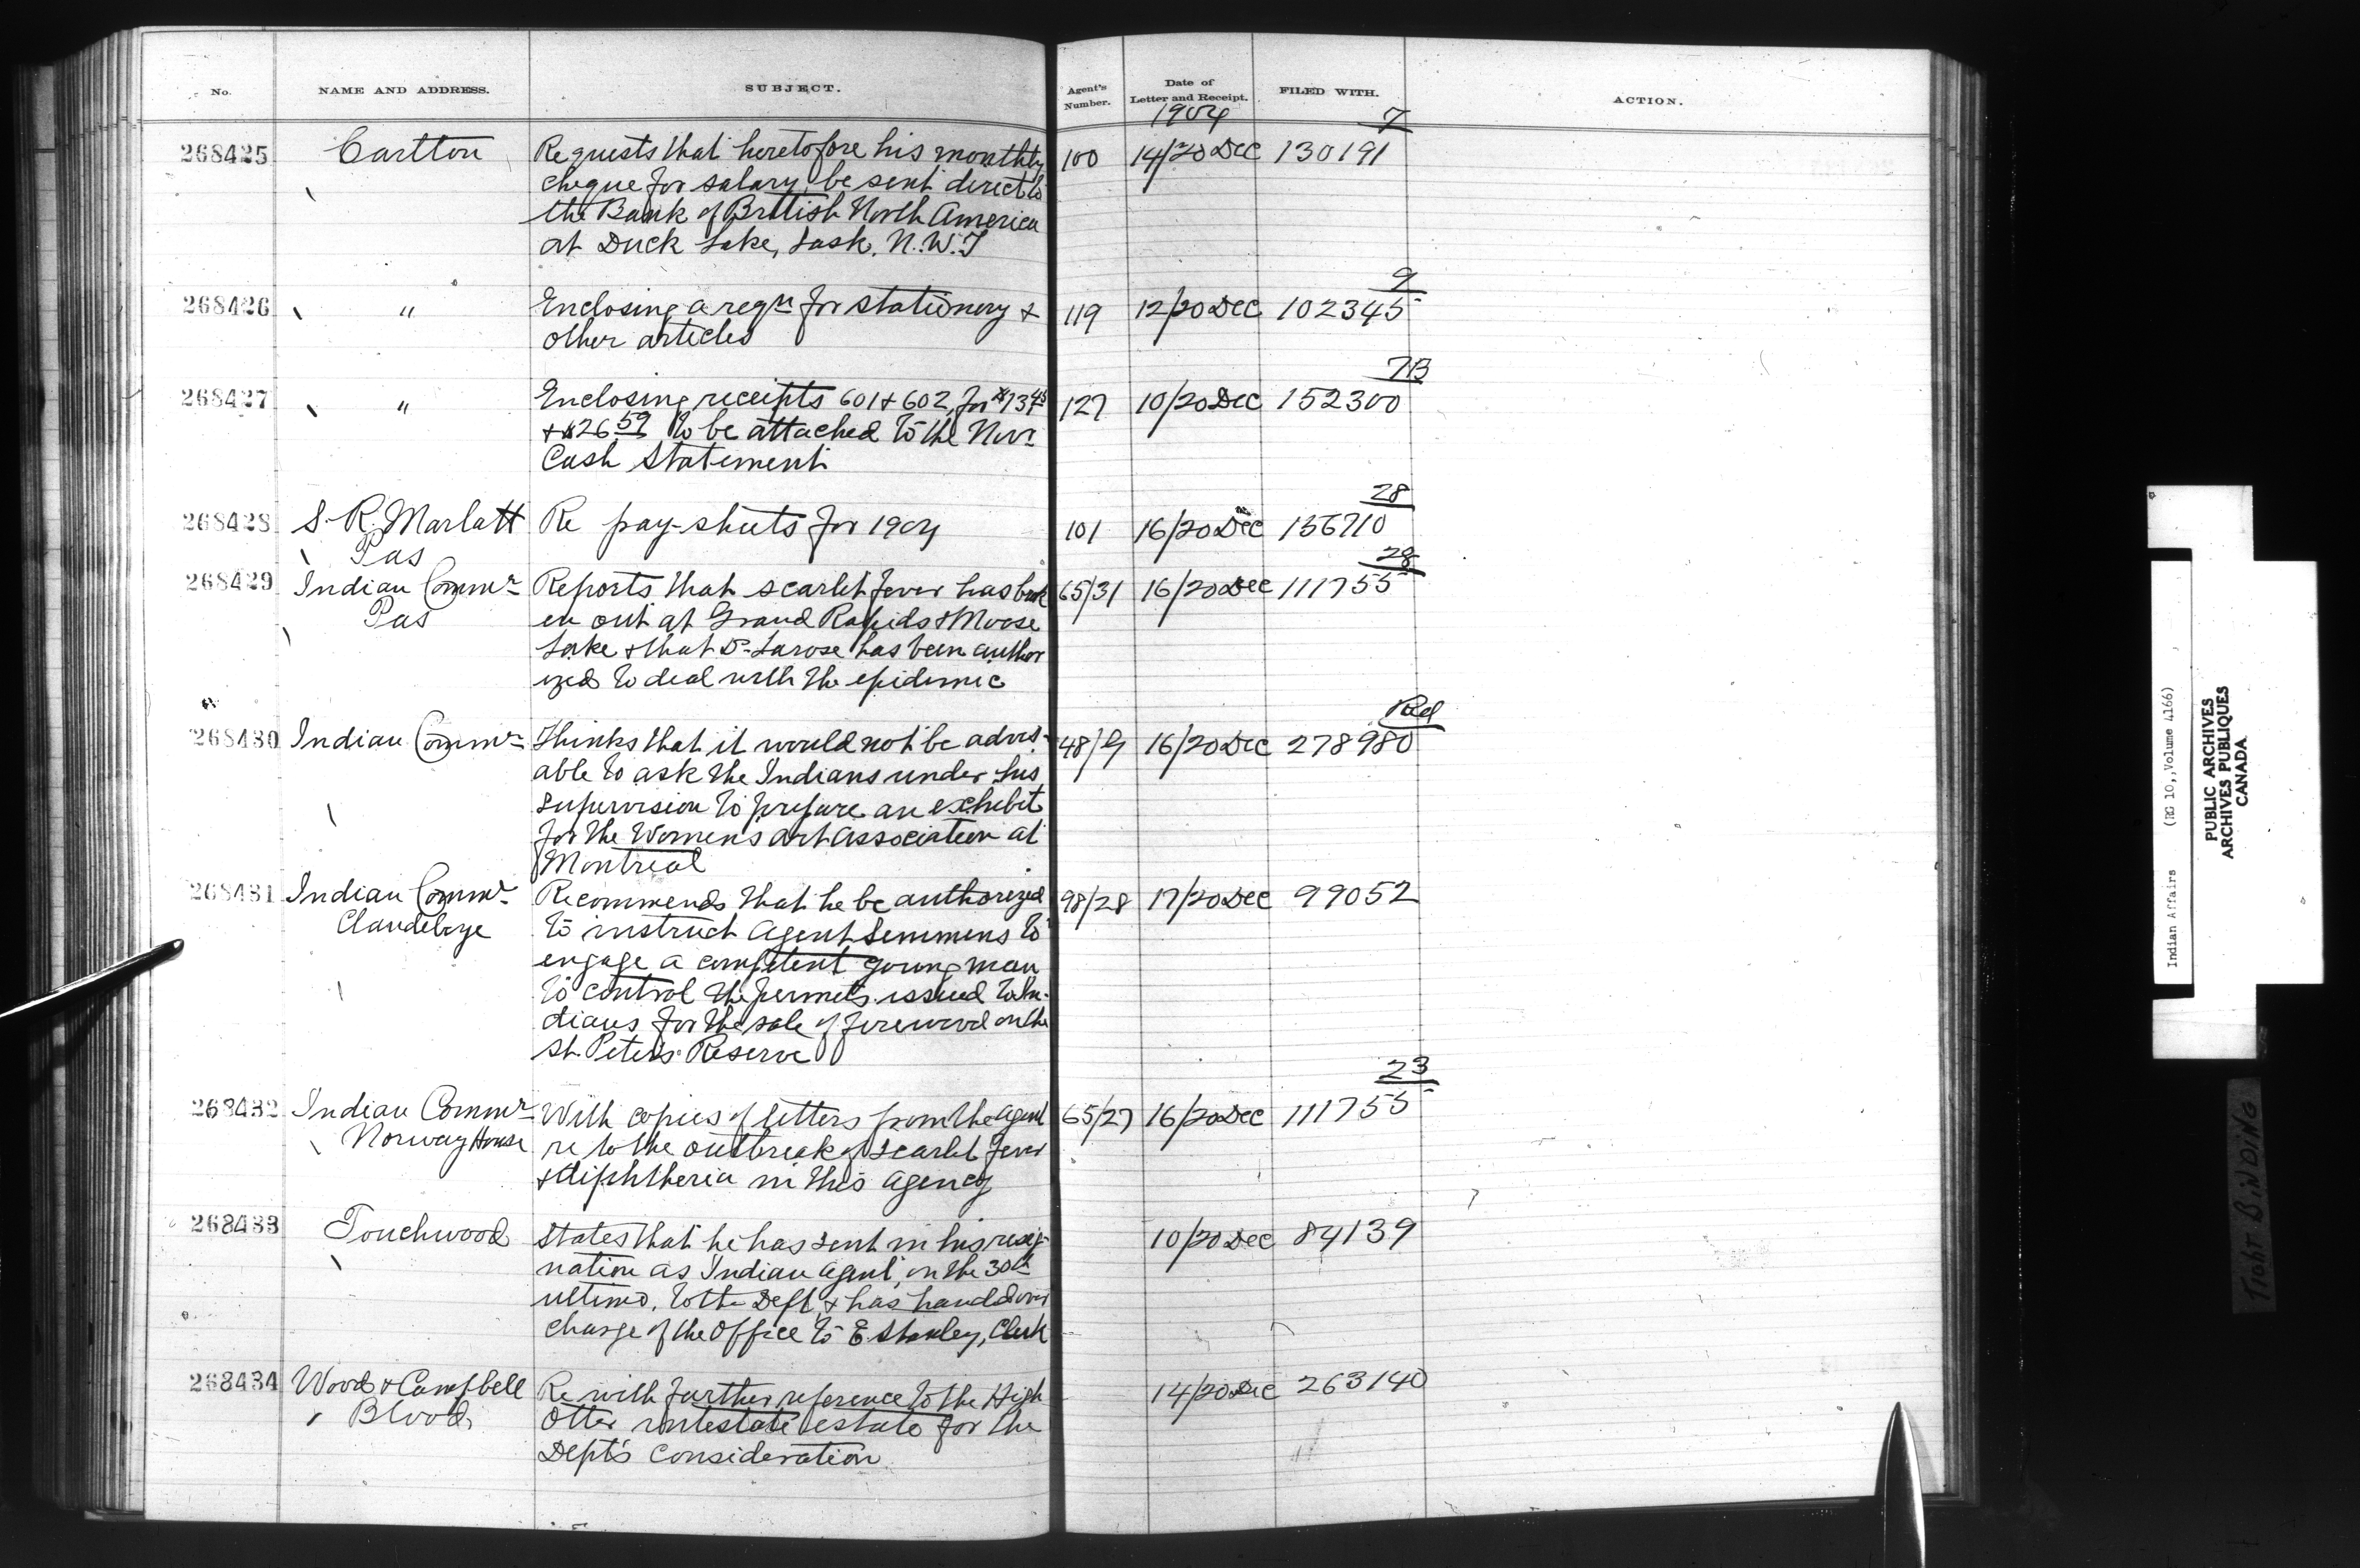 No. NAME AND ADDRESS. SUBJECT. Agent's Number. Date of Letter and Receipt. FILED WITH. ACTION.
1904 7
268425 Carlton Requests that heretofore his monthly 100 14/20 Dec 130191
cheque for salary, be sent direct to
the Bank of British North America
at Duck Lake, Sask. N.W.T
9
268426 " Enclosing a reqn for stationery & 119 12/20 Dec 102345
other articles
7B
268427 " Enclosing receipts 601 & 602, for $73 45 127 10/20 Dec 152300
& $26 59 to be attached to the Novr
Cash Statement
28
268428 S. R. Marlatt Re pay-sheets for 1904 101 16/20 Dec 136710
Pas
28
268429 Indian Commr Reports that scarlet fever has brok 65/31 16/20 Dec 111755
Pas en out at Grand Rapids & Moose
Lake & that Dr Larose has been author
ized to deal with the epidemic
Red
268430 Indian Commr Thinks that it would not be advis- 48/9 16/20 Dec 278980
able to ask the Indians under his
supervision to prepare an exhibit
for the Womens Art Association at
Montreal
268431 Indian Commr Recommends that he be authorized 98/28 17/20 Dec 99052
Clandeboye to instruct Agent Semmens to
engage a competent young man
to control the permits issued to In-
dians for the sale of firewood on the
St. Peter's Reserve
23
268432 Indian Commr With copies of letters from the agent 65/27 16/20 Dec 111755
Norway House re to the outbreak of scarlet fever
& diphtheria in this agency
268433 Touchwood States that he has sent in his resig- 10/20 Dec 84139
nation as Indian Agent, on the 30th
ultimo, to the Dept & has handed over
charge of the Office to E. Stanley, Clerk
268434 Wood & Campbell Re with further reference to the High 14/20 Dec 263140
Blood Otter intestate estate for the
Dept's consideration
Indian Affairs (RG 10, Volume 4166)
PUBLIC ARCHIVES
ARCHIVES PUBLIQUES
CANADA
TIGHT BINDING